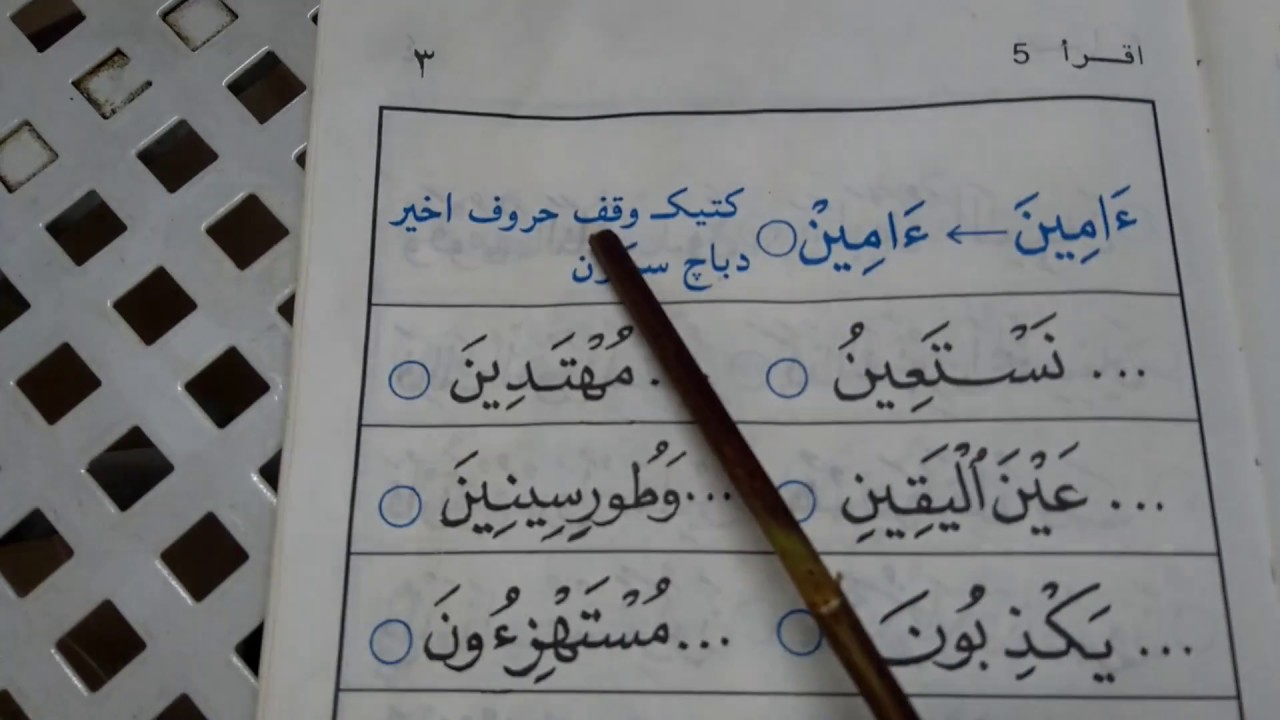 اقرأ 5 ٣
ءَامِينَ ← ءَامِيْنْ ○ كتيك وقف حروف اخير
دباچ سكون
... نَسْتَعِينُ ○ ... مُهْتَدِينَ ○
... عَيْنَ ٱلْيَقِينِ ○ ...وَطُورِسِينِينَ ○
... يَكْذِبُونَ ○ ...مُسْتَهْزِءُونَ ○